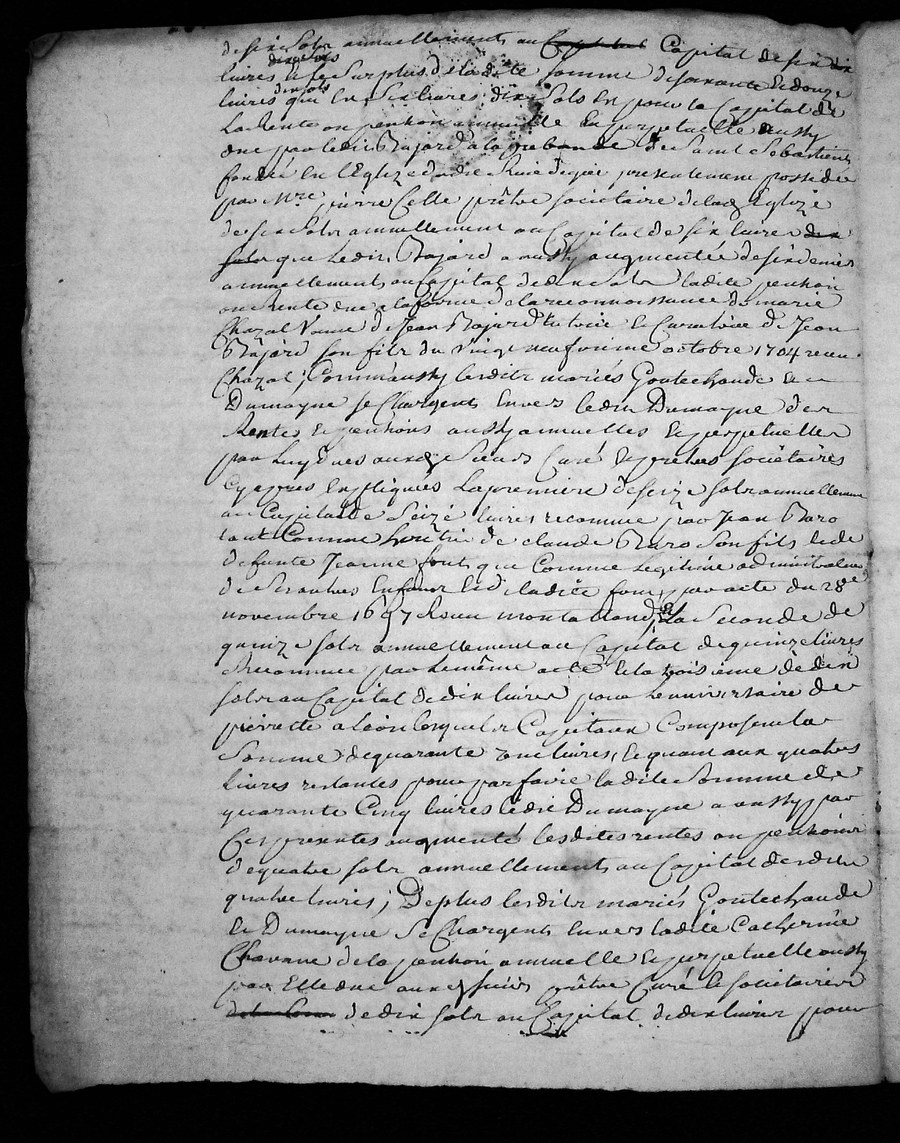 de six Sols annuellement au Capital de six
dix sols
livres et le Surplus de ladite somme de soixante et douze
dix sols
livres qui est Six livres dix Sols est pour le Capital de
la Rente ou penſion annuelle et perpetuelle aussy
due par ledit Bajard a la prebande de Saint Sebastient
fondée en l'Eglize dudit presentement possedée
par Mre pierre Celle prêtre sociétaire de lad Eglize
de six Sols annuellement au Capital de six livres dix
sols que Ledit Bajard a aussy augmentée de six deniers
annuellement au Capital de dix Sols ladite penſion
ou rente due a la forme de la reconnoissance de marie
Chazal Veuve de Jean Bajard tutrice et Curatrice de Jean
Bajard son fils du vingt neufvieme octobre 1704 receu
Chazal; Comm'aussy lesdits mariés Goutechaude et
Dumayne se Chargent Envers ledit Dumayne des
Rentes et penſions aussy annuelles et perpetuelles
par Luy dues auxd Sieurs Curé et prêtres sociétaires
Cyapres Expliquées La premiere de seize sols annuellement
au Capital de Seize livres reconnue par Jean Baro
tant Comme de claude Baro Son fils et de
defunte Jeanne font que Comme legitime administrateur
de Ses autres Enfans et de ladite font, par acte du 28e
novembre 1697 Receu montaland, Et La Seconde de
quinze sols annuellement au Capital de quinze livres
Reconnue par Le même acte Et la troisieme de dix
sols au Capital de dix livres pour L'anniversaire de
pierrette a leon lesquels Capitaux Composent la
Somme de quarante une livres, Et quant aux quatre
livres restantes pour parfaire ladite Somme de
quarante Cinq livres ledit Dumayne a aussy par
Ces presentes augmenté lesdites rentes ou penſions
de quatre sols annuellement au Capital desdites
quatre livres; De plus lesdits mariés Goutechaude
Et Dumayne Se Chargent Envers ladite Catherine
Chavane de la penſion annuelle et perpetuelle aussy
par Elle due auxd sieurs prêtre Curé et sociétaires
de dix sols au Capital de dix livres pour